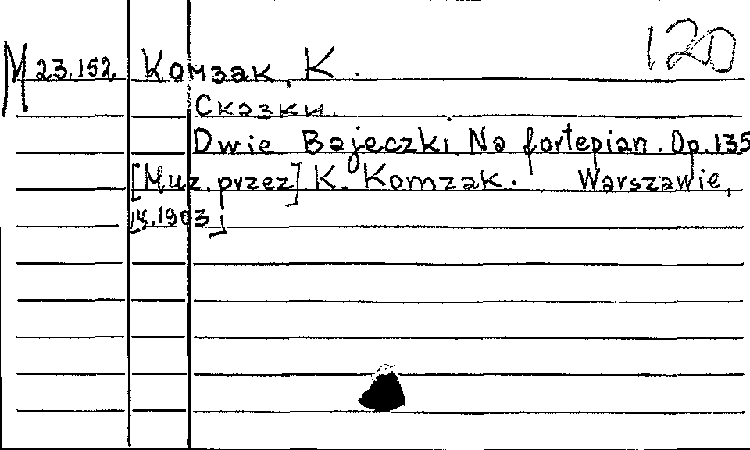 120
M 23.152 Komзak, K.
Сказки.
Dwie Bajeczki. Na fortepian. Op. 135
[Muz. przez] K. Komzak. Warszawie,
1903]